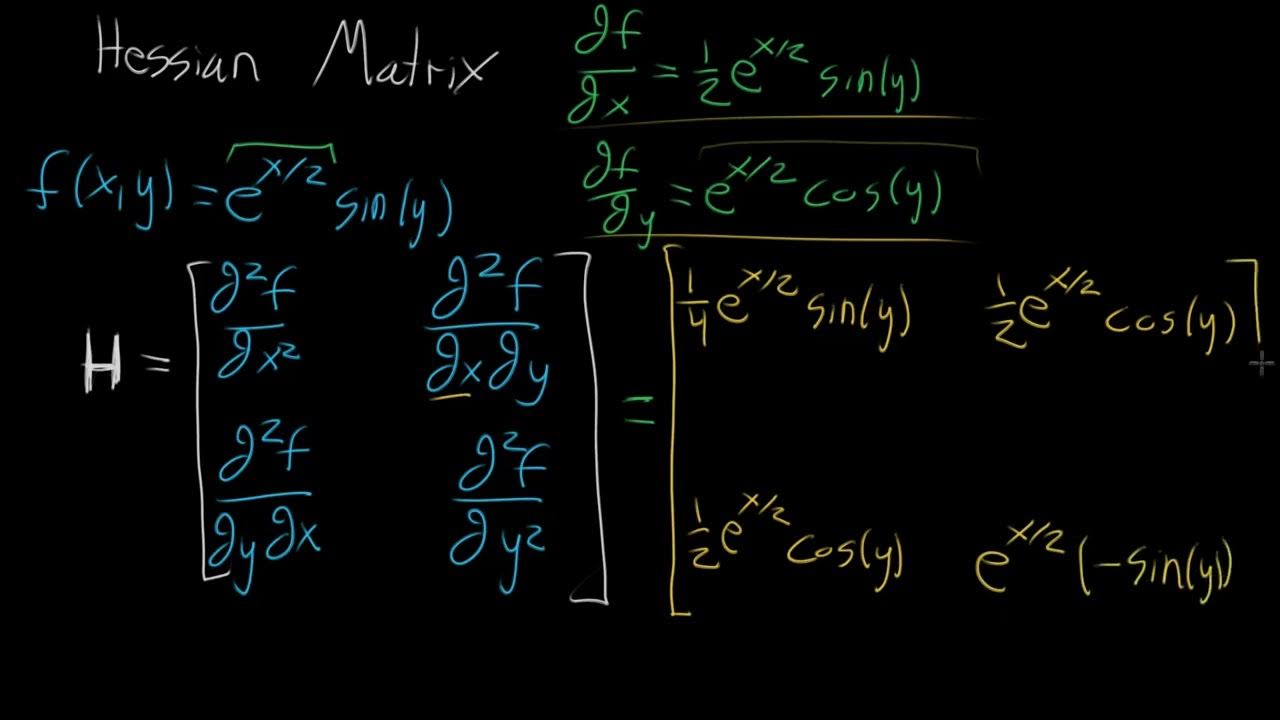 Hessian Matrix
∂f/∂x = 1/2 e^(x/2) sin(y)
f(x,y) = e^(x/2) sin(y)
∂f/∂y = e^(x/2) cos(y)
H = [ ∂²f/∂x² ∂²f/∂x∂y
∂²f/∂y∂x ∂²f/∂y² ]
= [ 1/4 e^(x/2) sin(y) 1/2 e^(x/2) cos(y)
1/2 e^(x/2) cos(y) e^(x/2) (-sin(y))